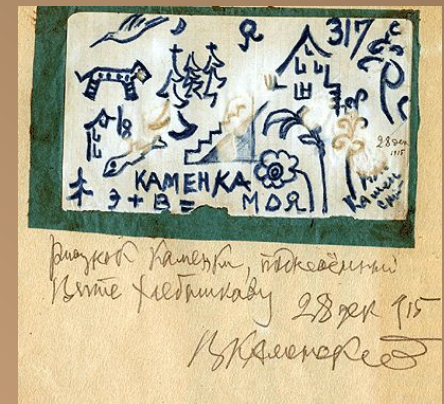 Я
317
28 дек
1915
КАМЕНКА
Э + В = МОЯ
рисунок Каменки, подаренный
Вите Хлебникову
28 дек 915
ВКаменский